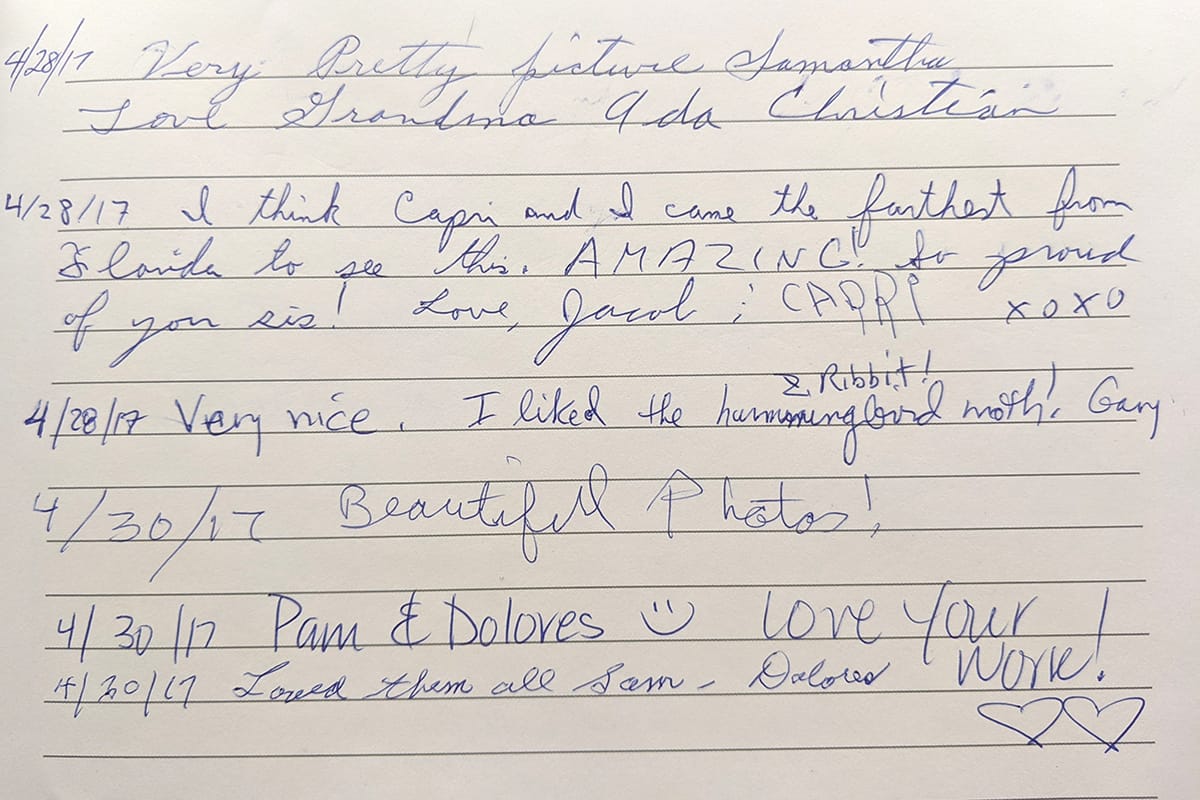 4/28/17 Very Pretty picture Samantha
Love Grandma Ada Christian
4/28/17 I think Capri and I came the farthest from
Florida to see this. AMAZING! So proud
of you sis! Love, Jacob ; CAPRI XOXO
& Ribbit!
4/28/17 Very nice. I liked the hummingbird moth! Gary
4/30/17 Beautiful Photos!
4/30/17 Pam & Dolores Love Your
Work!
4/30/17 Loved them all Sam - Dolores